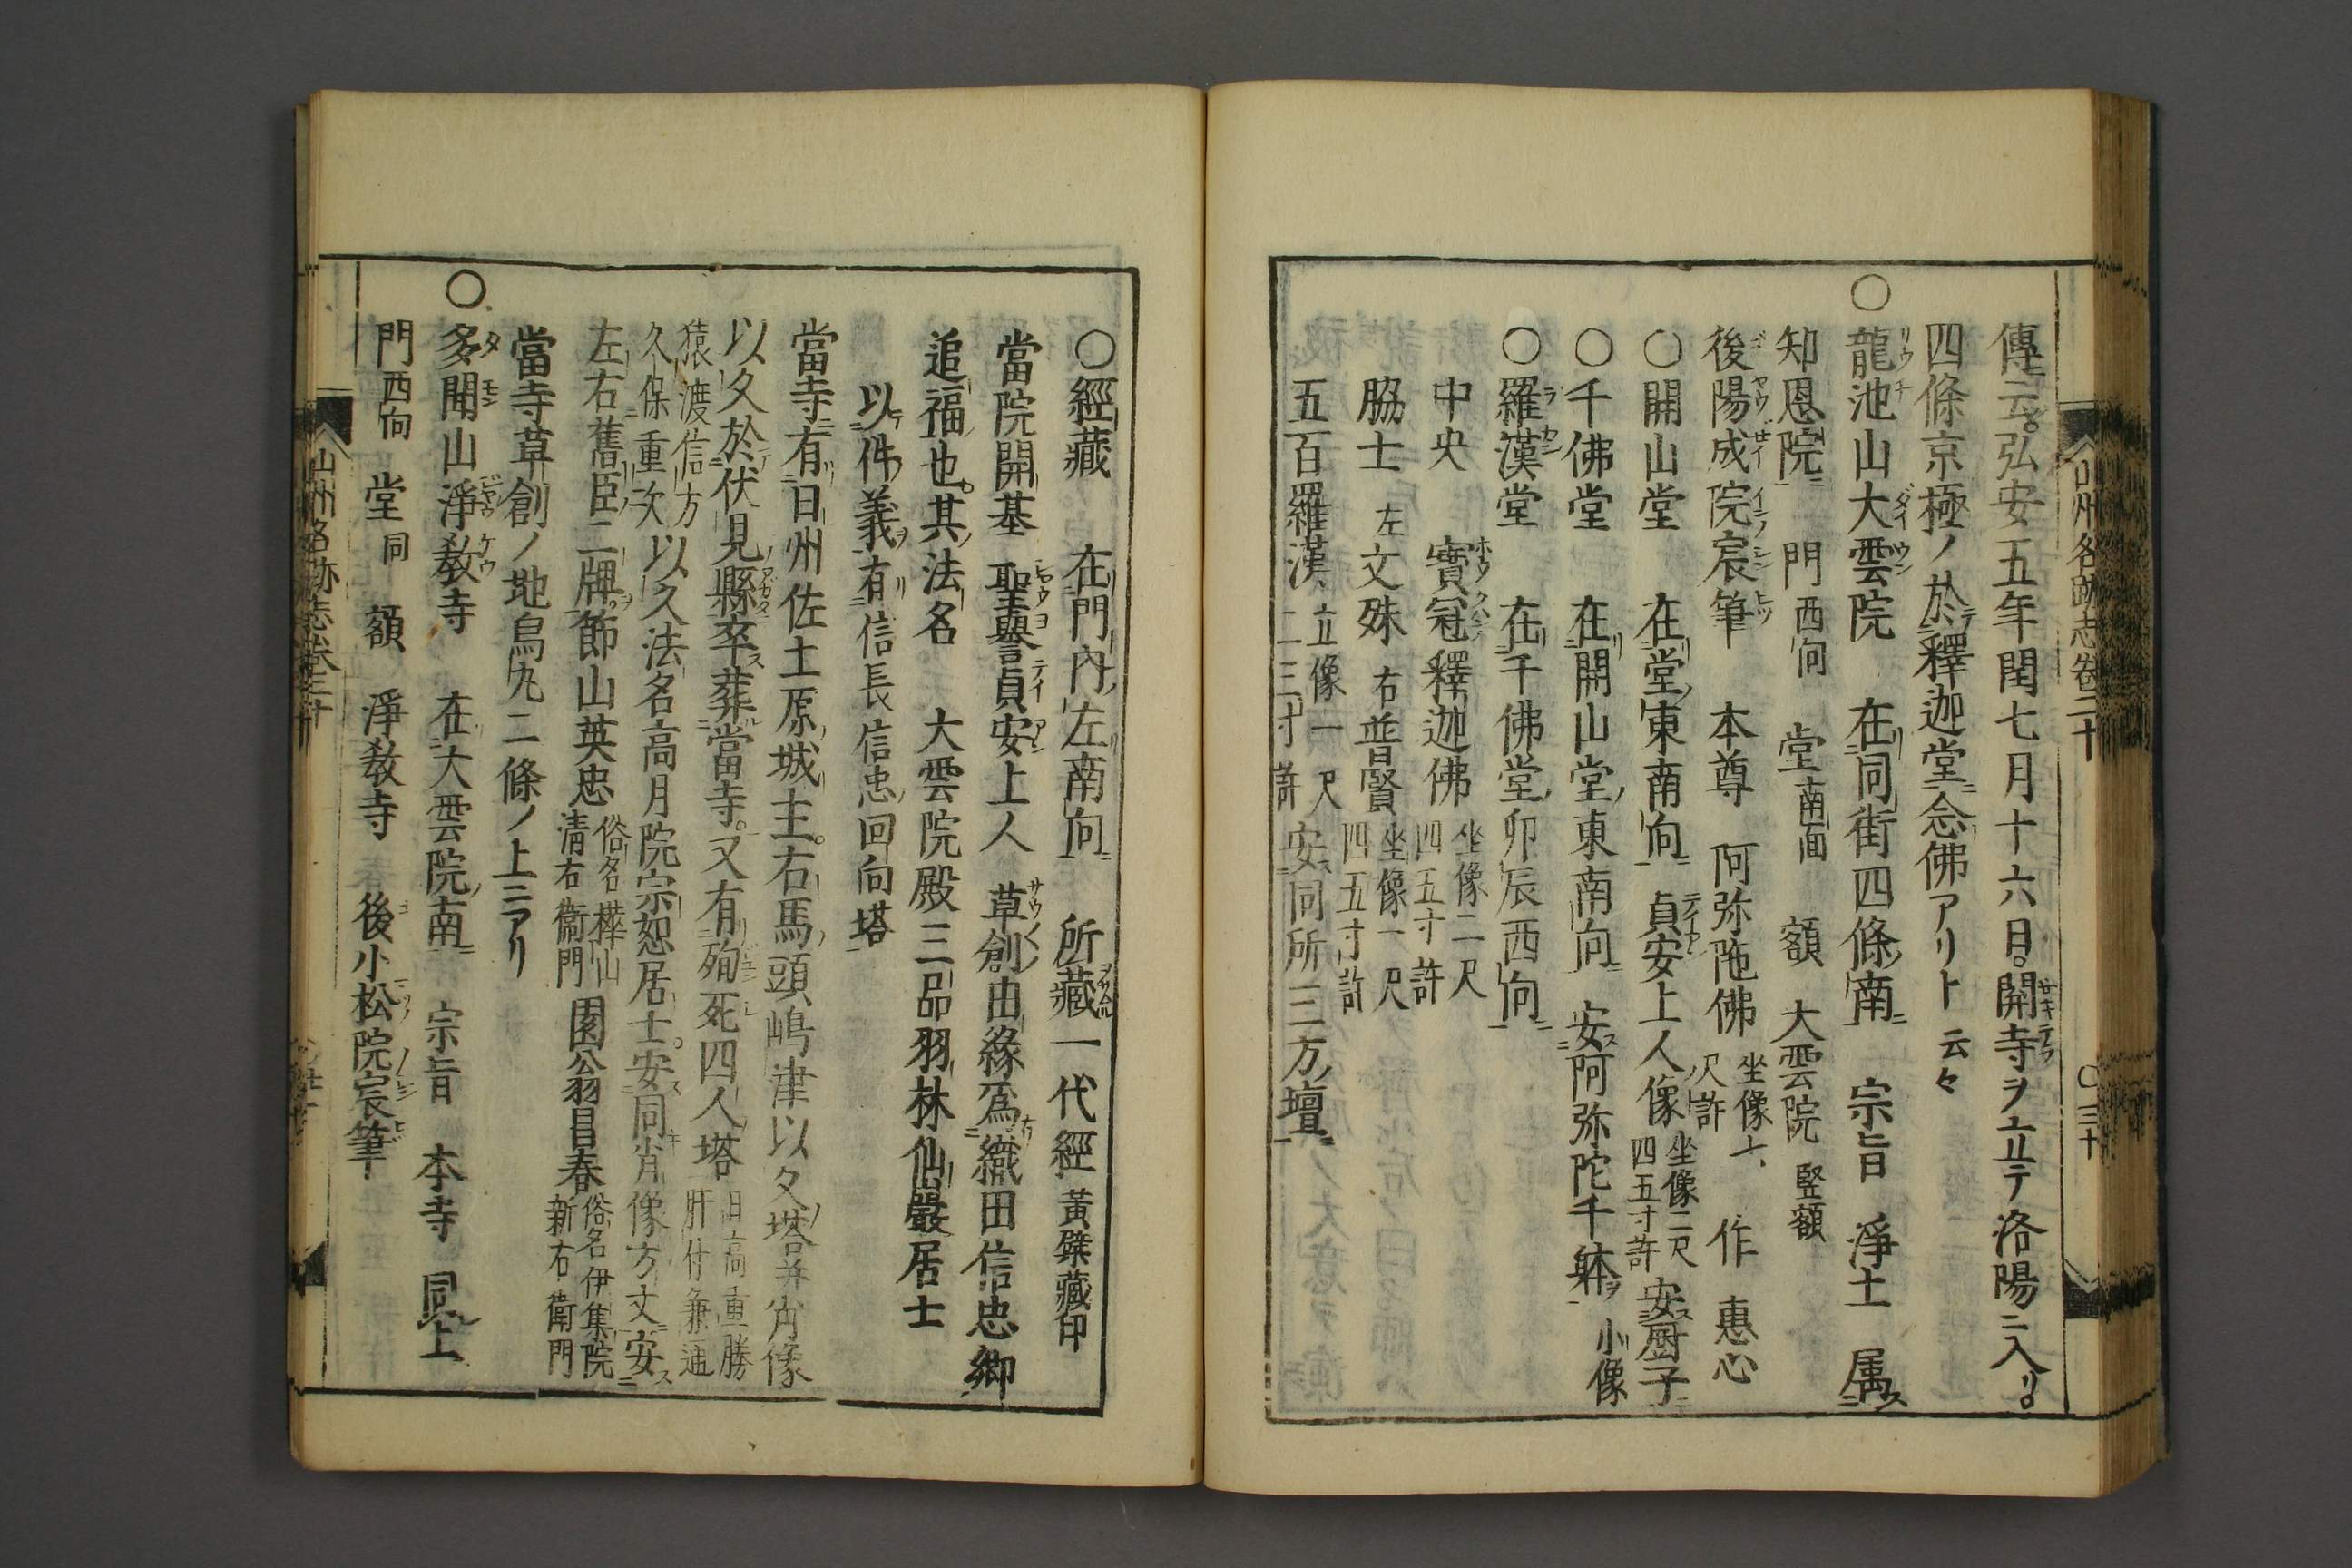 傳云。弘安五年閏七月十六日。開寺ヲ立テ洛陽ニ入リ。
四條京極ノ於釋迦堂念佛アリト云々
○龍池山大雲院 在同街四條南 宗旨 淨土 属
知恩院 門西向 堂南面 額 大雲院竪額
後陽成院宸筆 本尊 阿弥陁佛 坐像七尺許 作 惠心
○開山堂 在堂東南向 貞安上人像 坐像二尺四五寸許 安厨子
○千佛堂 在開山堂東南向 安阿弥陀千躰 小像
○羅漢堂 在千佛堂卯辰西向
中央 寳冠釋迦佛 坐像二尺四五寸許
脇士 左文殊 右普賢 坐像一尺四五寸許
五百羅漢 立像一尺二三寸許 安同所三方壇
山州名跡志卷二十 ○三十
○經藏 在門内左南向 所藏一代經 黄檗藏印
當院開基 聖譽貞安上人 草創由緣爲織田信忠卿
追福也。其法名 大雲院殿三品羽林仙巖居士
以件義有信長信忠回向塔
當寺有日州佐土原城主。右馬頭嶋津以久塔并肖像
以久於伏見縣卒葬當寺。又有殉死四人塔 日高重勝 肝付兼通
猿渡信方 久保重次 以久法名高月院宗恕居士。安同肖像方丈安
左右舊臣二牌。節山英忠 俗名樺山清右衞門 園翁昌春 俗名伊集院新右衞門
當寺草創ノ地烏丸二條ノ上ニアリ
○多聞山淨敎寺 在大雲院南 宗旨 本寺 同上
門西向 堂同 額 淨敎寺 後小松院宸筆
山州名跡志卷二十